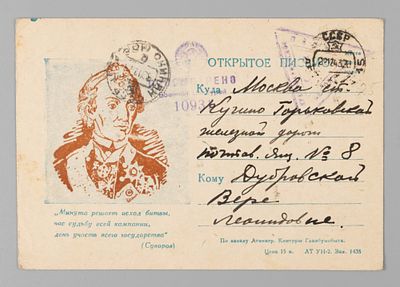 ОТКРЫТОЕ ПИСЬМО
СССР
1093
Куда Москва ст.
Кучино Горьковской
железной дороги
почтов. ящ. № 8
Кому Дубровской
Вере
Леонидовне.
„Минута решает исход битвы,
час судьбу всей кампании,
день участь всего государства"
(Суворов)
По заказу Ленингр. Конторы Главбумсбыта.
Цена 15 к. АТ УН-2. Зак. 1438